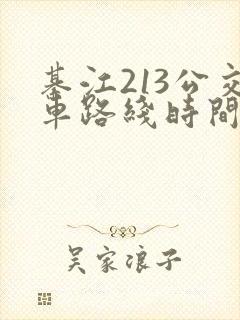 綦江213公交
車路綫時間
吴家浪子